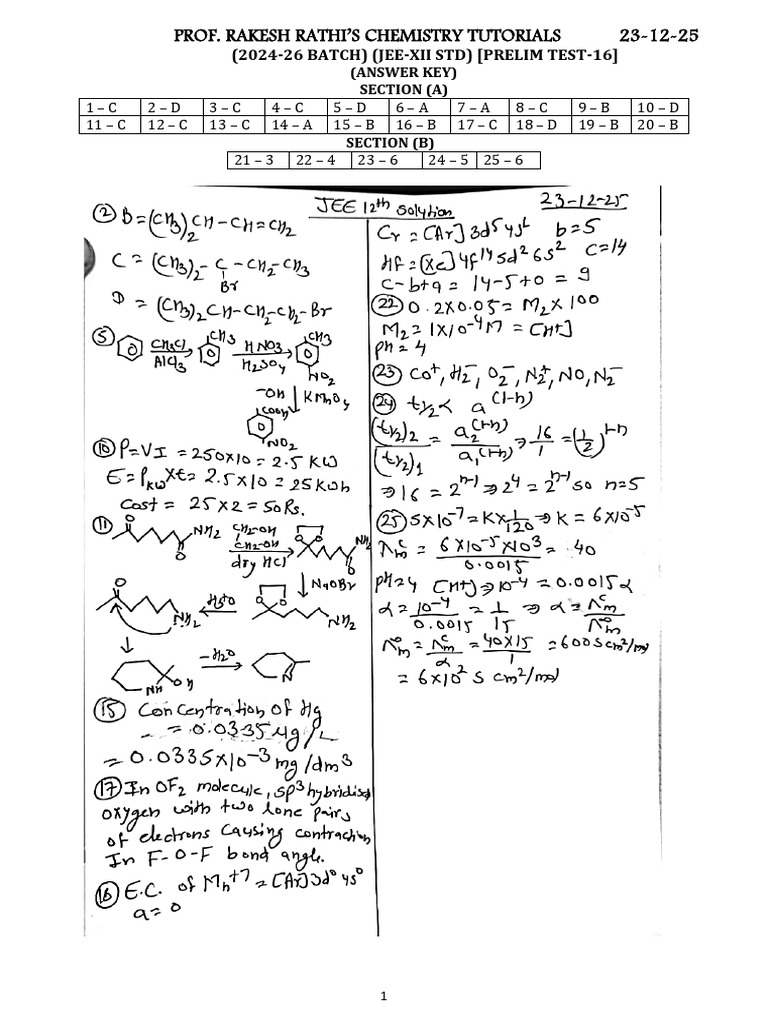 PROF. RAKESH RATHI'S CHEMISTRY TUTORIALS 23-12-25
(2024-26 BATCH) (JEE-XII STD) [PRELIM TEST-16]
(ANSWER KEY)
SECTION (A)
1 – C 2 – D 3 – C 4 – C 5 – D 6 – A 7 – A 8 – C 9 – B 10 – D
11 – C 12 – C 13 – C 14 – A 15 – B 16 – B 17 – C 18 – D 19 – B 20 – B
SECTION (B)
21 – 3 22 – 4 23 – 6 24 – 5 25 – 6
JEE 12th Solution 23-12-25
② B = (CH3)2 CH - CH = CH2
C = (CH3)2 - C - CH2 - CH3
Br
D = (CH3)2 CH - CH2 - CH2 - Br
⑤ CH3Cl
AlCl3
CH3
HNO3
H2SO4
CH3
NO2
-OH KMnO4
COOH
NO2
⑩ P = VI = 250×10 = 2.5 KW
E = PKW × t = 2.5 × 10 = 25 KWh
Cost = 25 × 2 = 50 Rs.
⑪ O
NH2
O
CH2-OH
CH2-OH
dry HCl
O O
NH2
O
NaOBr
O O
NH2
H3O
O
NH2
NH OH
-H2O
N
⑮ Concentration of Hg
= 0.0335 μg/L
= 0.0335×10-3 mg/dm3
⑰ In OF2 molecule, sp3 hybridised
oxygen with two lone pairs
of electrons causing contraction
In F-O-F bond angle.
⑯ E.C. of Mn+7 = [Ar] 3d0 4s0
a = 0
Cr = [Ar] 3d5 4s1 b = 5
Hf = [Xe] 4f14 5d2 6s2 C = 14
C - b + a = 14 - 5 + 0 = 9
㉒ 0.2 × 0.05 = M2 × 100
M2 = 1×10-4 M = [H+]
PH = 4
㉓ CO+, H2-, O2-, N2+, NO, N2-
㉔ t1/2 ∝ a(1-n)
(t1/2)2 / (t1/2)1 = a2(1-n) / a1(1-n) ⇒ 16/1 = (1/2)1-n
⇒ 16 = 2n-1 ⇒ 24 = 2n-1 so n = 5
㉕ 5×10-7 = K × 1/120 ⇒ K = 6×10-5
Λmc = 6×10-5×103 / 0.0015 = 40
PH = 4 [H+] ⇒ 10-4 = 0.0015 α
α = 10-4 / 0.0015 = 1/15 ⇒ α = Λmc / Λmo
Λmo = Λmc / α = 40×15 / 1 = 600 S cm2/mol
= 6×102 S cm2/mol
1